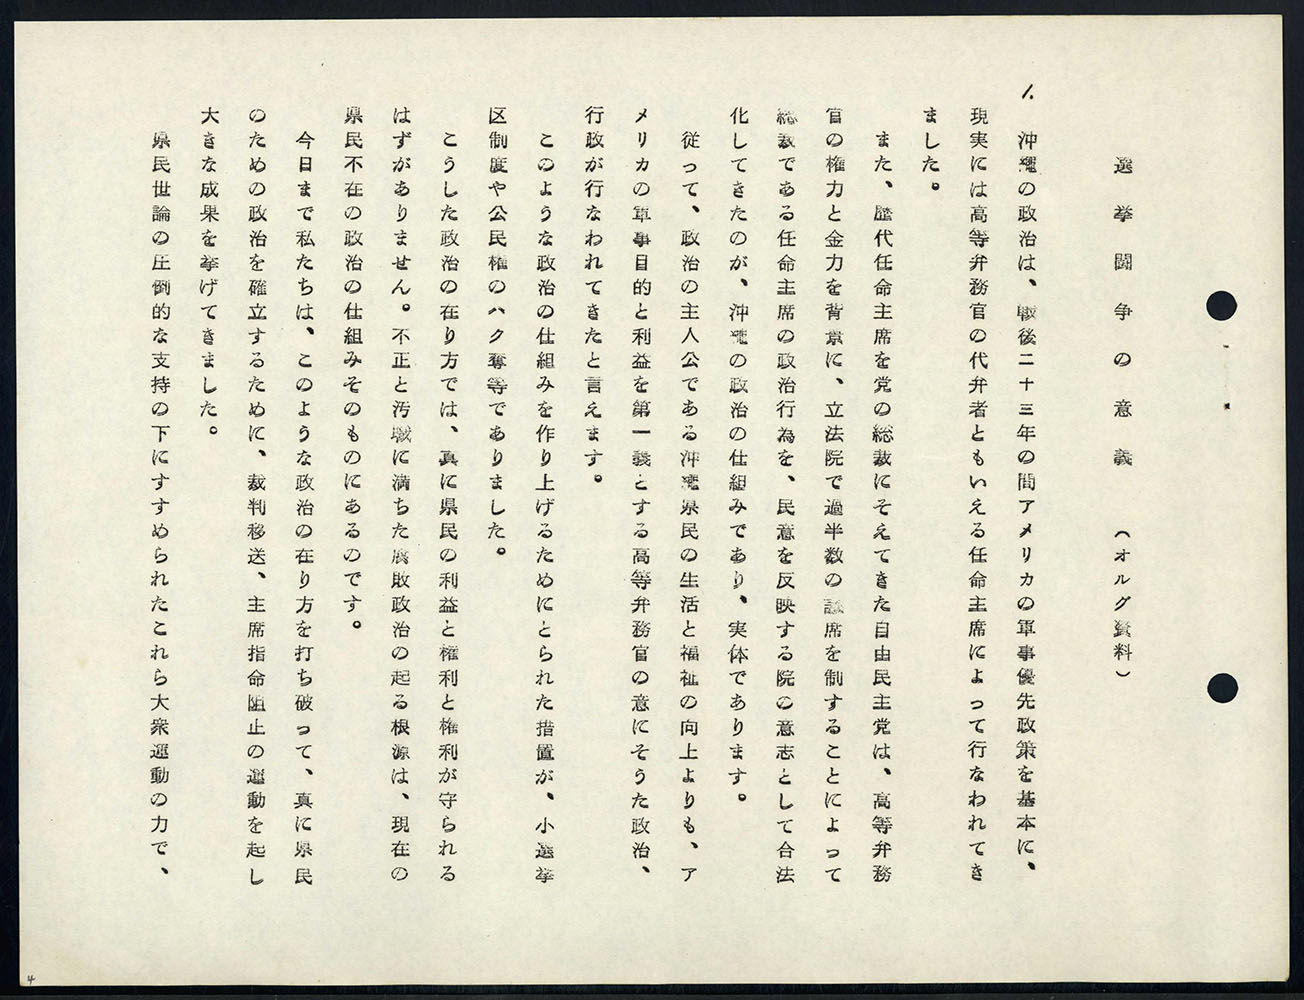 選挙闘争の意義　（オルグ資料）
1.　沖縄の政治は、戦後二十三年の間アメリカの軍事優先政策を基本に、
現実には高等弁務官の代弁者ともいえる任命主席によって行なわれてき
ました。
また、歴代任命主席を党の総裁にそえてきた自由民主党は、高等弁務
官の権力と金力を背景に、立法院で過半数の議席を制することによって
総裁である任命主席の政治行為を、民意を反映する院の意志として合法
化してきたのが、沖縄の政治の仕組みであり、実体であります。
従って、政治の主人公である沖縄県民の生活と福祉の向上よりも、ア
メリカの軍事目的と利益を第一義とする高等弁務官の意にそうた政治、
行政が行なわれてきたと言えます。
このような政治の仕組みを作り上げるためにとられた措置が、小選挙
区制度や公民権のハク奪等でありました。
こうした政治の在り方では、真に県民の利益と権利と権利が守られる
はずがありません。不正と汚職に満ちた腐敗政治の起る根源は、現在の
県民不在の政治の仕組みそのものにあるのです。
今日まで私たちは、このような政治の在り方を打ち破って、真に県民
のための政治を確立するために、裁判移送、主席指命阻止の運動を起し
大きな成果を挙げてきました。
県民世論の圧倒的な支持の下にすすめられたこれら大衆運動の力で、
4